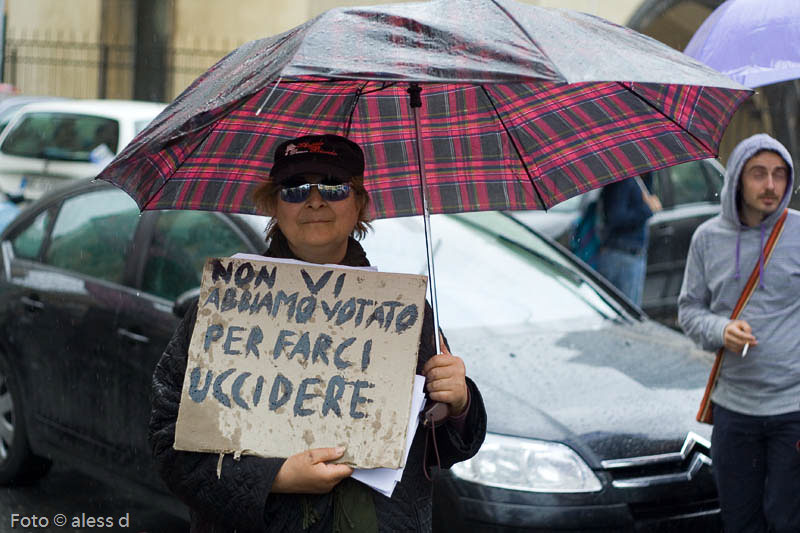 NON VI
ABBIAMO VOTATO
PER FARCI
UCCIDERE
Foto © aless d